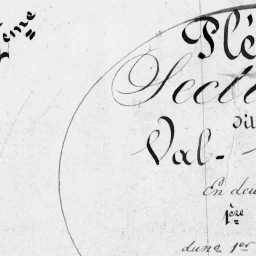 ème
Plé
Secti
Dit
Val-
En deu
1ère
dune 1er